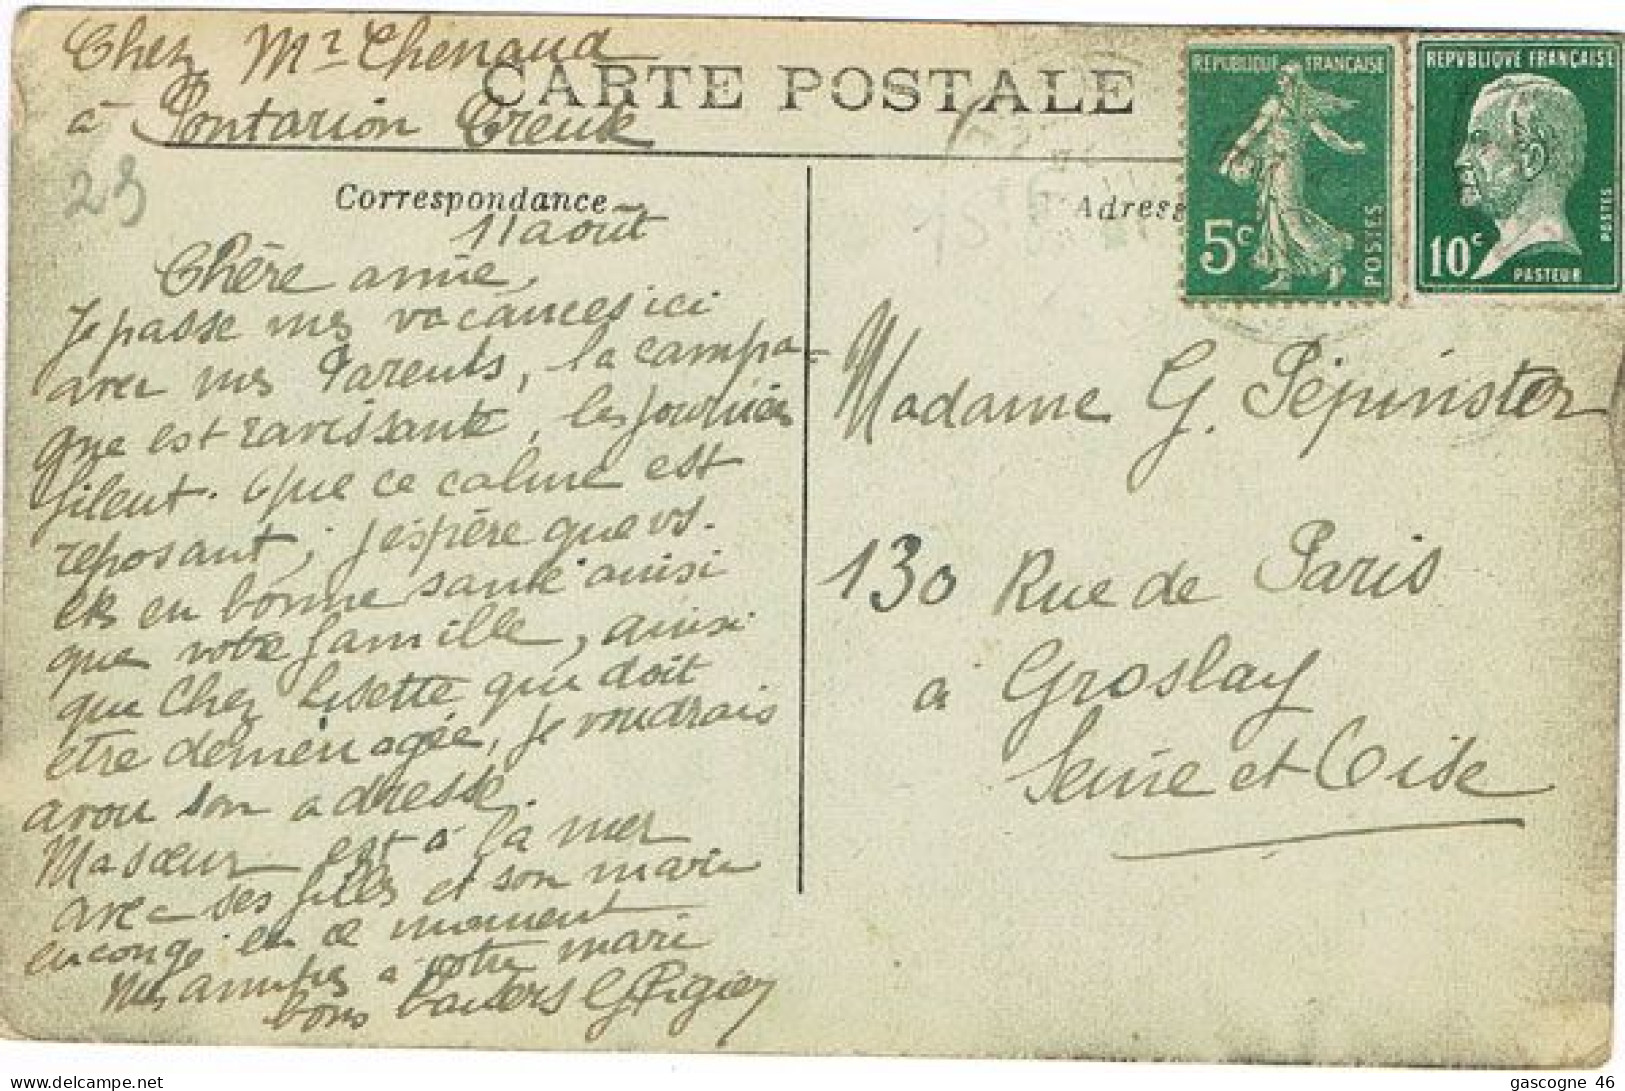 Chez Mr Chenaud
à Pontarion Creuse
CARTE POSTALE
23
Correspondance
Adress
REPUBLIQUE FRANÇAISE
5c
POSTES
REPUBLIQUE FRANÇAISE
10c
PASTEUR
POSTES
11 août
Chère amie,
Je passe mes vacances ici
avec mes Parents, la campa-
gne est ravissante, les journées
filent. Que ce calme est
reposant; j'espère que vs.
êtes en bonne santé ainsi
que votre famille, ainsi
que chez Lisette qui doit
etre déménagée, je voudrais
avoir son adresse.
Ma sœur est à la mer
avec ses filles et son mari
en congé en ce moment
Mes amitiés à votre mari
bons baisers G
Madame G. Pépinster
130 Rue de Paris
à Groslay
Seine et Oise
gascogne 46